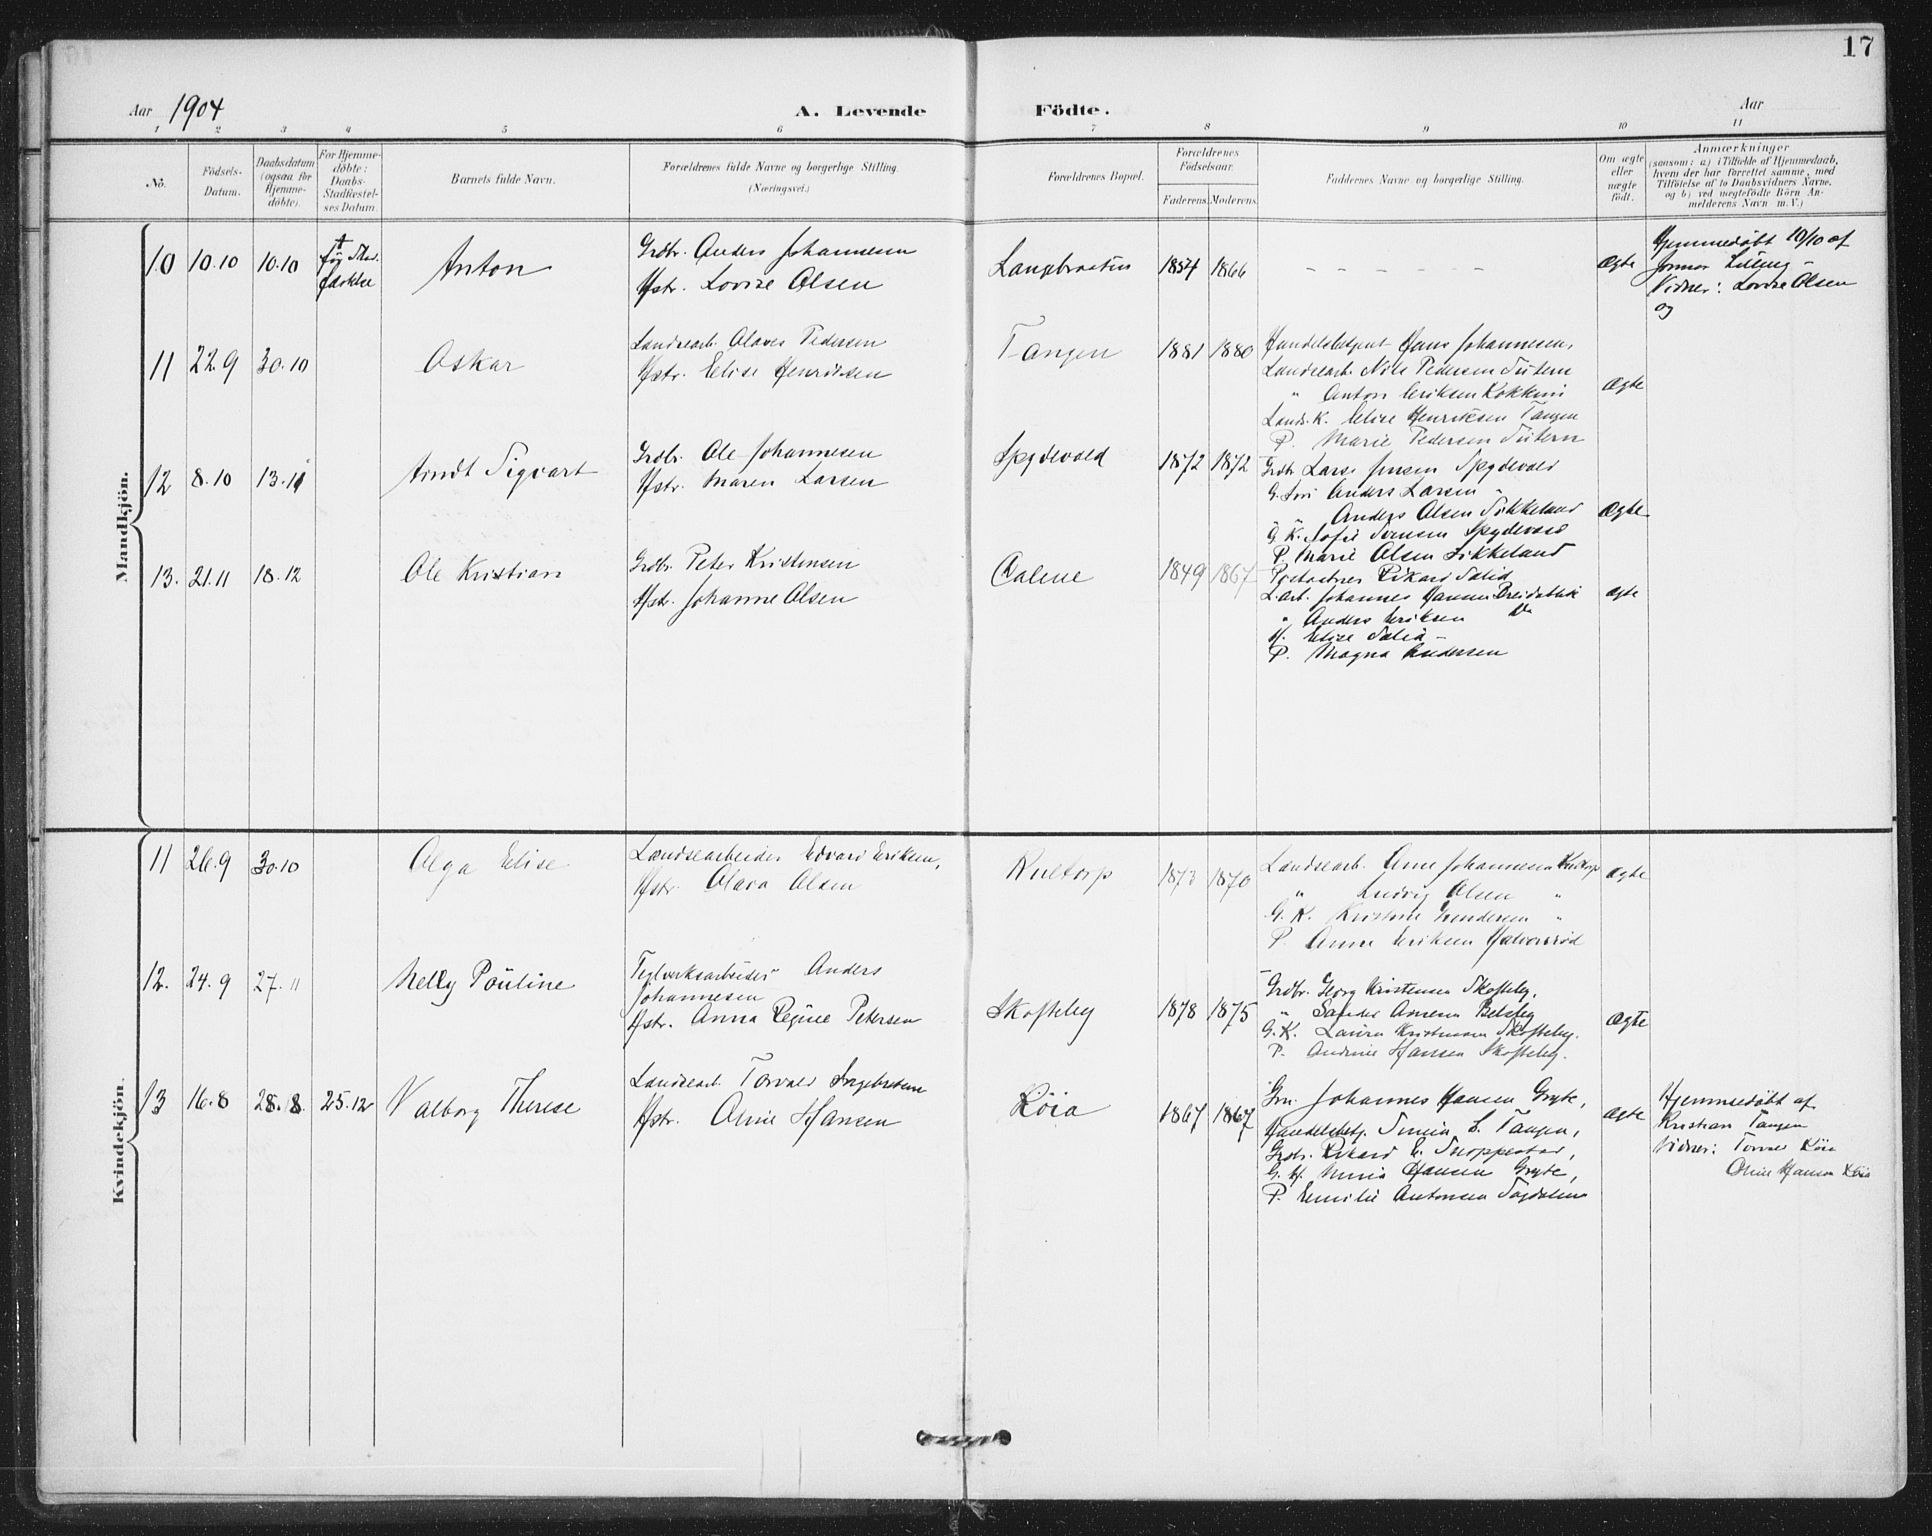 17
Aar 1904
A. Levende Födte.
Aar
1 2 3 4 5 6 7 8 9 10 11
No.
Födsels-Datum.
Daabsdatum (ogsaa for Hjemmedöbte).
For Hjemmedöbte: Daabs-Stadfæstelses Datum.
Barnets fulde Navn.
Forældrenes fulde Navne og borgerlige Stilling.
(Næringsvei.)
Forældrenes Bopæl.
Forældrenes Födselsaar.
Faderens. Moderens.
Faddernes Navne og borgerlige Stilling.
Om ægte eller uægte födt.
Anmærkninger
(saasom: a) i Tilfælde af Hjemmedaab,
hvem der har forrettet samme, med
Tilföielse af to Daabsvidners Navne,
og b) ved uægtefödte Börn Anmelderens Navn m. V.)
Mandkjön.
10 10.10 10.10 † før Stadfæstelse
Anton
Grdbr. Anders Johannesen
Hstr. Lovise Olsen
Langbraaten 1854 1866
Ægte
Hjemmedøbt 10/10 af
Jormor
Vidner: Lovise Olsen
og
11 22.9 30.10
Oskar
Landsearb. Olaves Pedersen
Hstr. Elise Henriksen
Tangen 1881 1880
Handelsbetjent Hans Johannesen,
Landsearb. Nils Pedersen
" Anton Eriksen
Lands.K. Elise Henriksen Tangen
P. Marie Pedersen
Ægte
12 8.10 13.11
Arndt Sigvart
Grdbr. Ole Johannesen
Hstr. Maren Larsen
Spydevold 1872 1872
Grdbr Lars Jensen Spydevold
G. Søn Anders Larsen "
" Anders Olsen Sikkeland
G. K. Sofie Jensen Spydevold
P. Marie Olsen Sikkeland
Ægte
13. 21.11 18.12
Ole Kristian
Grdbr. Peter Kristensen
Hstr. Johanne Olsen
1849 1867
Rikard
L. arb. Johannes Hansen
" Anders Eriksen
H. Elise
P. Magna Andersen
Ægte
Kvindekjön.
11 26.9 30.10
Olga Elise
Landsearbeider Edvard Eriksen,
Hstr. Olava Olsen
Rultorp 1873 1870
Landsearb. Arne Johannesen Rultorp
" Ludvig Olsen "
G. K. Kristine Gundersen "
P. Anne Eriksen Halvorsrød
Ægte
12. 24.9 27.11
Nelly Pouline
Teglverksarbeider Anders
Johannesen
Hstr. Anna Regine Petersen
Skofteby 1878 1875
Grdbr. Georg Kristensen Skofteby,
" Sander Arnesen
G. K. Laura Kristensen Skofteby.
P. Andrine Hansen Skofteby.
Ægte
13 16.8 28.8 25.12
Valborg Therese
Landsearb. Torvald Ingebretsen
Hstr. Oline Hansen
Röia 1867 1867
Grn. Johannes Hansen Gryte,
Handelsbetj. Simen E. Tangen,
Grdbr. Rikard E.
G. H. Maria Hansen Gryte,
P. Emilie Antonsen
Ægte
Hjemmedøbt af
Kristian Tangen
Vidner: Torval Röia
Oline Hansen Röia